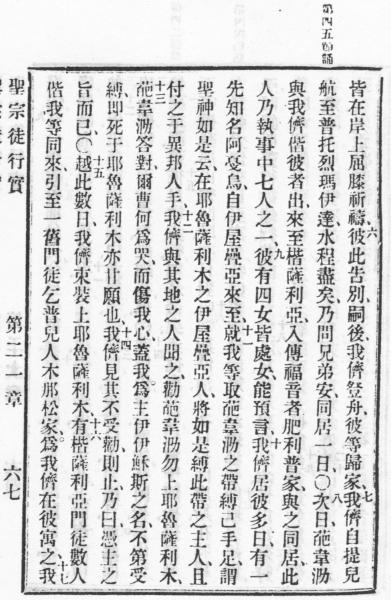 皆在岸上屈膝祈禱彼此告別嗣後我儕登舟彼等歸家七我儕自提兒
航至普托烈瑪伊達水程盡矣乃問兄弟安同居一日○次日葩韋泐
與我儕偕彼者出來至楷薩利亞入傳福音者肥利普家與之同居此
人乃執事中七人之一九彼有四女皆處女能預言十我儕居彼多日有一
先知名阿戞烏自伊屋疊亞來十一至就我等取葩韋泐之帶縛己手足謂
聖神如是云在耶魯薩利木之伊屋疊亞人將如是縛此帶之主人且
付之于異邦人手十二我儕與其地之人聞之勸葩韋泐勿上耶魯薩利木
十三葩韋泐答對爾曹何爲哭而傷我心蓋我爲主伊伊穌斯之名不第受
縛卽死于耶魯薩利木亦甘願也十四我儕見其不受勸則止乃曰憑主之
旨而已○十五越此數日我儕束裝上耶魯薩利木十六有楷薩利亞門徒數人
偕我等同來引至一舊門徒乞普兒人木那松家爲我儕在彼寓之十七我
聖宗徒行實
第二一章
六七
第四五節誦